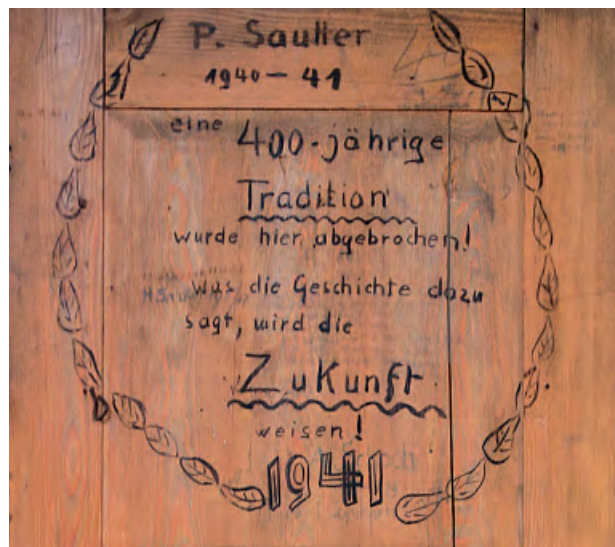 P. Sautter
1940-41
eine 400-jährige
Tradition
wurde hier abgebrochen!
was die Geschichte dazu
sagt, wird die
Zukunft
weisen!
1941